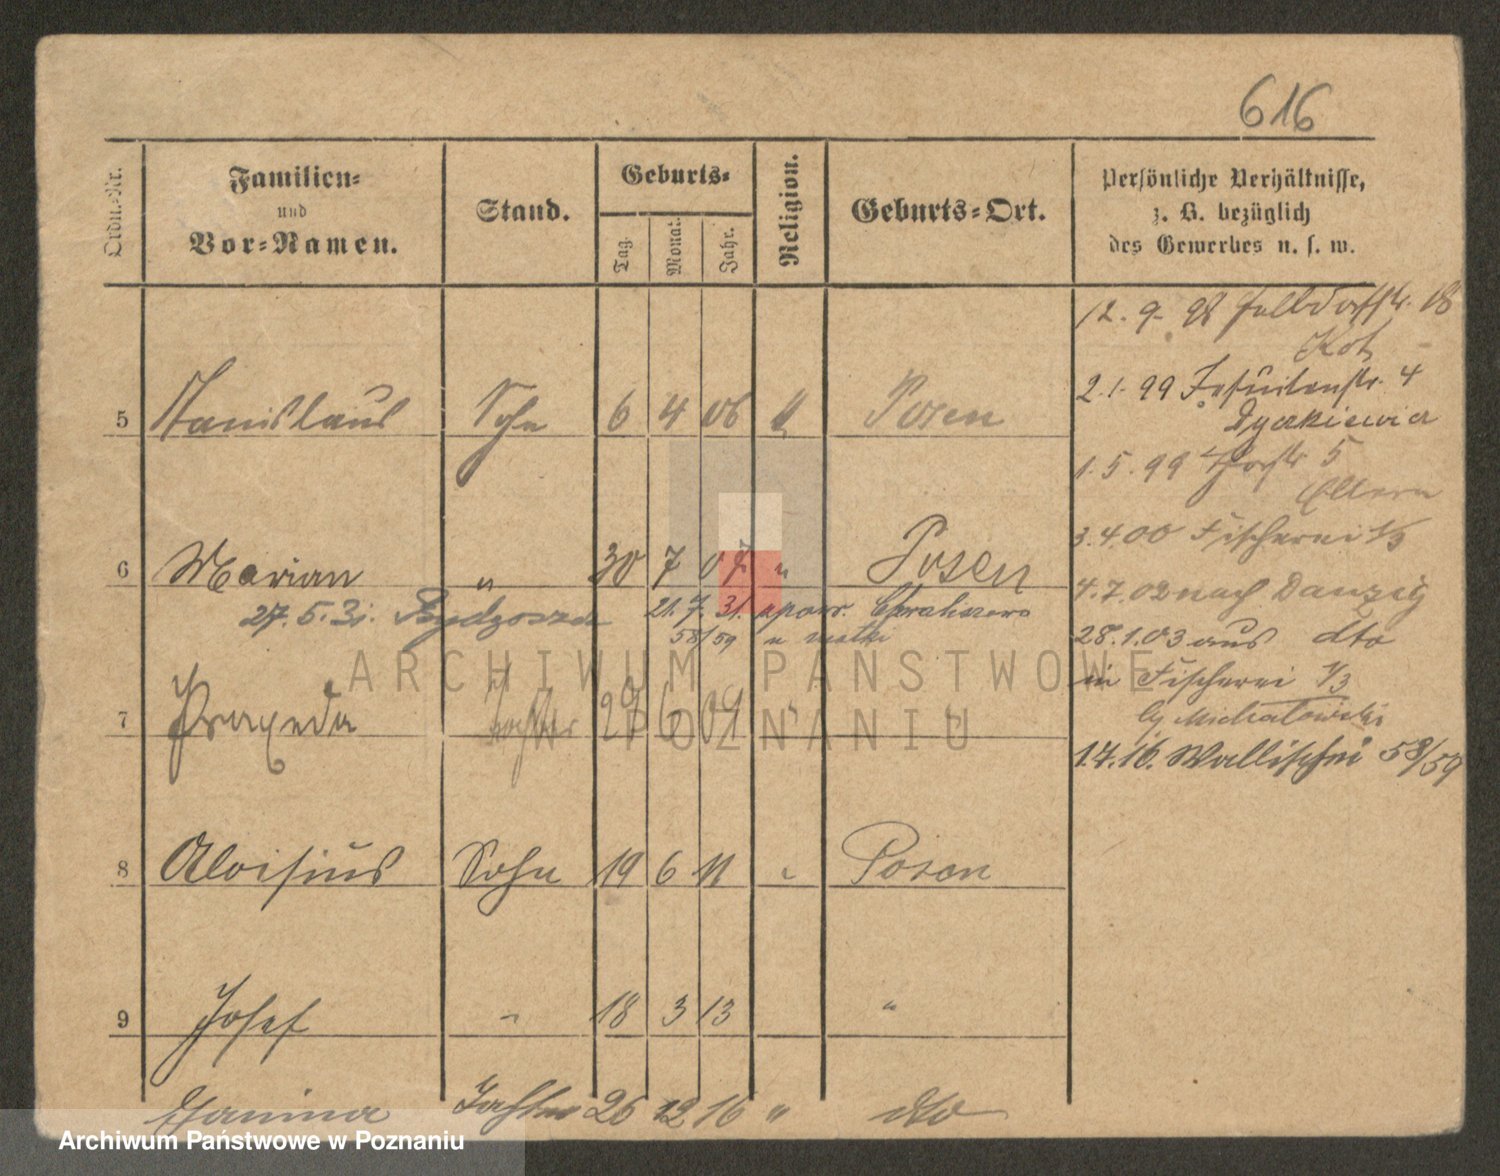 616
Ordn.-Nr.
Familien-
und
Vor-Namen.
Stand.
Geburts-
Tag.
Monat.
Jahr.
Religion.
Geburts-Ort.
Persönliche Verhältnisse,
z. B. bezüglich
des Gewerbes u. s. w.
12. 9. 98 18
Kot
2.1.99 Jesuitenstr. 4
1.5.99 5
Eltern
3.4.00 Fischerei 1/3
4.7.02 nach Danzig
28.1.03 aus dto
in Fischerei 1/3
by Michalowski
1.4.16. Wallischei 58/59
5 Stanislaus Sohn 6 4 06 " Posen
6 Marian " 30 7 07 " Posen
27.5.31. Bydgoszcz 21.7.31. Chwaliszewo
58/59 u matki
7 Praxeda Tochter 29 6 09 " "
8 Aloisius Sohn 19 6 11 " Posen
9 Josef " 18 3 13 "
Janina Tochter 26 12 16 " dto
ARCHIWUM PAŃSTWOWE
W POZNANIU
Archiwum Państwowe w Poznaniu